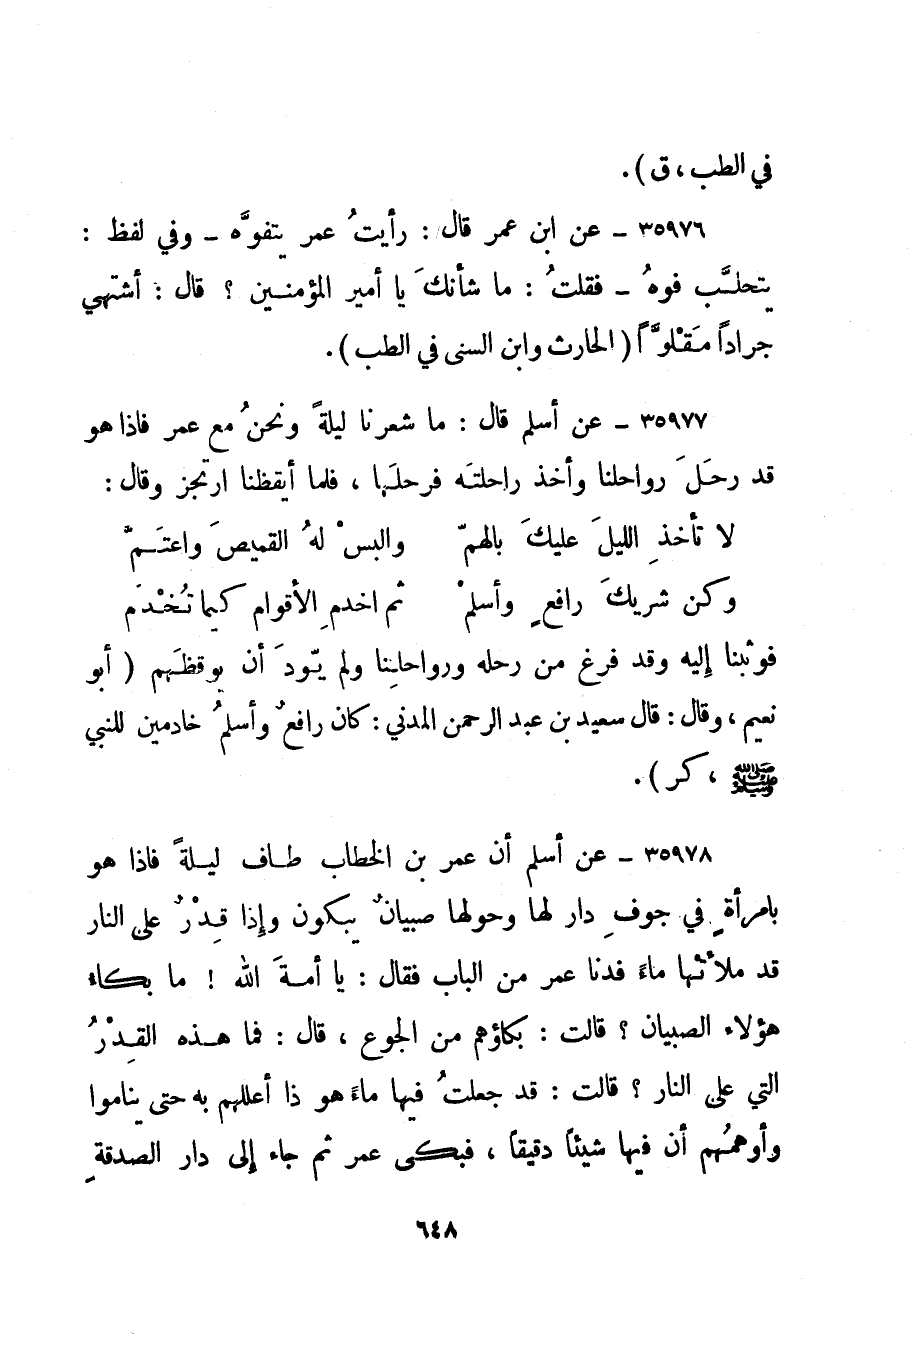 في الطب ، ق ) .
٣٥٩٧٦ ـ عن ابن عمر قال : رأيتُ عمر يتفوَّه ـ وفي لفظ :
يتحلَّب فوهُ ـ فقلتُ : ما شأنكَ يا أمير المؤمنين ؟ قال : أشتهي
جراداً مَقْلوَّاً ( الحارث وابن السنى في الطب ) .
٣٥٩٧٧ ـ عن أسلم قال : ما شعرنا ليلةً ونحنُ مع عمر فاذا هو
قد رحَلَ رواحلنا وأخذ راحلتَه فرحلَها ، فلما أيقظنا ارتجز وقال :
لا تأخذِ الليلَ عليكَ بالهمّ والبسْ لهُ القميصَ واعتَمّْ
وكن شريكَ رافعٍ وأسلمْ ثم اخدمِ الأقوام كيما تُخْدَم
فوثبنا إليه وقد فرغ من رحله ورواحلِنا ولم يّودَ أن يوقظَهم ( أبو
نعيم ، وقال : قال سعيد بن عبد الرحمن المدني : كان رافعٌ وأسلمُ خادمين للنبي
ﷺ ، كر ) .
٣٥٩٧٨ ـ عن أسلم أن عمر بن الخطاب طاف ليلةً فاذا هو
بامرأةٍ في جوفِ دار لها وحولها صبيانٌ يبكون وإذا قِدْرٌ على النار
قد ملأَتْها ماءً فدنا عمر من الباب فقال : يا أمةَ الله ! ما بكاء
هؤلاء الصبيان ؟ قالت : بكاؤهم من الجوع ، قال : فما هذه القِدْرُ
التي على النار ؟ قالت : قد جعلتُ فيها ماءً هو ذا أعللهم به حتى يناموا
وأوهمُهم أن فيها شيئاً دقيقاً ، فبكى عمر ثم جاء إلى دار الصدقةِ
٦٤٨